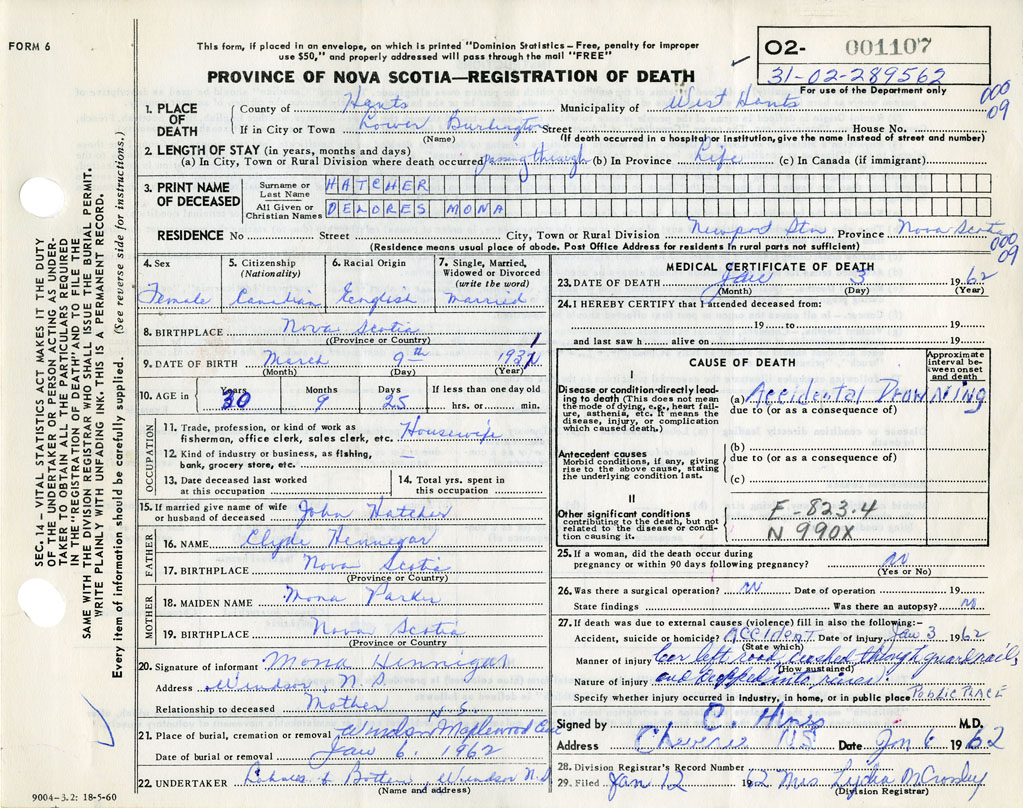 FORM 6
This form, if placed in an envelope, on which is printed "Dominion Statistics—Free, penalty for improper
use $50," and properly addressed will pass through the mail "FREE"
PROVINCE OF NOVA SCOTIA—REGISTRATION OF DEATH
02- 001107
31-02-289562
For use of the Department only
000
09
1. PLACE OF DEATH
County of Hants Municipality of West Hants
If in City or Town Lower Burlington Street House No.
(Name) (If death occurred in a hospital or institution, give the name instead of street and number)
2. LENGTH OF STAY (in years, months and days)
(a) In City, Town or Rural Division where death occurred passing through (b) In Province Life (c) In Canada (if immigrant)
3. PRINT NAME OF DECEASED
Surname or Last Name HATCHER
All Given or Christian Names DELORES MONA
RESIDENCE No Street City, Town or Rural Division Newport Stn Province Nova Scotia
(Residence means usual place of abode. Post Office Address for residents in rural parts not sufficient)
000
09
4. Sex Female
5. Citizenship (Nationality) Canadian
6. Racial Origin English
7. Single, Married, Widowed or Divorced (write the word) Married
8. BIRTHPLACE Nova Scotia
(Province or Country)
9. DATE OF BIRTH March 9th 1931
(Month) (Day) (Year)
10. AGE in Years 30 Months 9 Days 25 If less than one day old hrs. or min.
OCCUPATION
11. Trade, profession, or kind of work as
fisherman, office clerk, sales clerk, etc. Housewife
12. Kind of industry or business, as fishing,
bank, grocery store, etc. —
13. Date deceased last worked
at this occupation
14. Total yrs. spent in
this occupation
15. If married give name of wife
or husband of deceased John Hatcher
FATHER
16. NAME Clyde Hennegar
17. BIRTHPLACE Nova Scotia
(Province or Country)
MOTHER
18. MAIDEN NAME Mona Parker
19. BIRTHPLACE Nova Scotia
(Province or Country)
20. Signature of informant Mona Hennigar
Address Windsor, N.S.
Relationship to deceased Mother
21. Place of burial, cremation or removal Windsor N.S. Maplewood Cem
Date of burial or removal Jan 6, 1962
22. UNDERTAKER Windsor N.S.
(Name and address)
MEDICAL CERTIFICATE OF DEATH
23. DATE OF DEATH Jan 3 1962
(Month) (Day) (Year)
24. I HEREBY CERTIFY that I attended deceased from:
19 to 19
and last saw h alive on 19
CAUSE OF DEATH
Approximate interval between onset and death
I
Disease or condition directly leading
to death (This does not mean
the mode of dying, e.g., heart failure,
asthenia, etc. It means the
disease, injury, or complication
which caused death.)
(a) Accidental Drowning
due to (or as a consequence of)
Antecedent causes
Morbid conditions, if any, giving
rise to the above cause, stating
the underlying condition last.
(b)
due to (or as a consequence of)
(c)
II
Other significant conditions
contributing to the death, but not
related to the disease or condition
causing it.
E-823.4
N 990X
25. If a woman, did the death occur during
pregnancy or within 90 days following pregnancy? No
(Yes or No)
26. Was there a surgical operation? No Date of operation 19
State findings Was there an autopsy? No
27. If death was due to external causes (violence) fill in also the following:—
Accident, suicide or homicide? ACCIDENT Date of injury Jan 3 1962
(State which)
Manner of injury Car left road, crashed through guard rails,
(How sustained)
Nature of injury and into river
Specify whether injury occurred in industry, in home, or in public place PUBLIC PLACE
Signed by C. Hines M.D.
Address Cheverie NS Date Jan 6 1962
28. Division Registrar's Record Number
29. Filed Jan 12 1962 Mrs Lydia McCrosley
(Division Registrar)
SEC. 14—VITAL STATISTICS ACT MAKES IT THE DUTY
OF THE UNDERTAKER OR PERSON ACTING AS UNDERTAKER
TO OBTAIN ALL THE PARTICULARS REQUIRED
IN THE "REGISTRATION OF DEATH" AND TO FILE THE
SAME WITH THE DIVISION REGISTRAR WHO SHALL ISSUE THE BURIAL PERMIT.
WRITE PLAINLY WITH UNFADING INK. THIS IS A PERMANENT RECORD.
Every item of information should be carefully supplied. (See reverse side for instructions.)
9004-3.2: 18-5-60